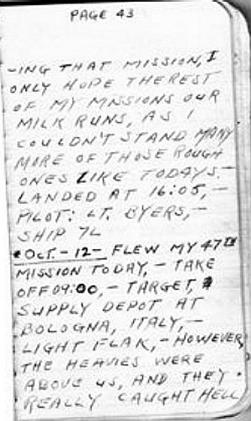 PAGE 43
-ING THAT MISSION, I
ONLY HOPE THE REST
OF MY MISSIONS OUR
MILK RUNS, AS I
COULDN'T STAND MANY
MORE OF THOSE ROUGH
ONES LIKE TODAYS.-
LANDED AT 16:05,-
PILOT: LT. BYERS,-
SHIP 7L
•OCT.-12- FLEW MY 47TH
MISSION TODAY,- TAKE
OFF 09:00,- TARGET,
SUPPLY DEPOT AT
BOLOGNA, ITALY,-
LIGHT FLAK,- HOWEVER,
THE HEAVIES WERE
ABOVE US, AND THEY
REALLY CAUGHT HELL,